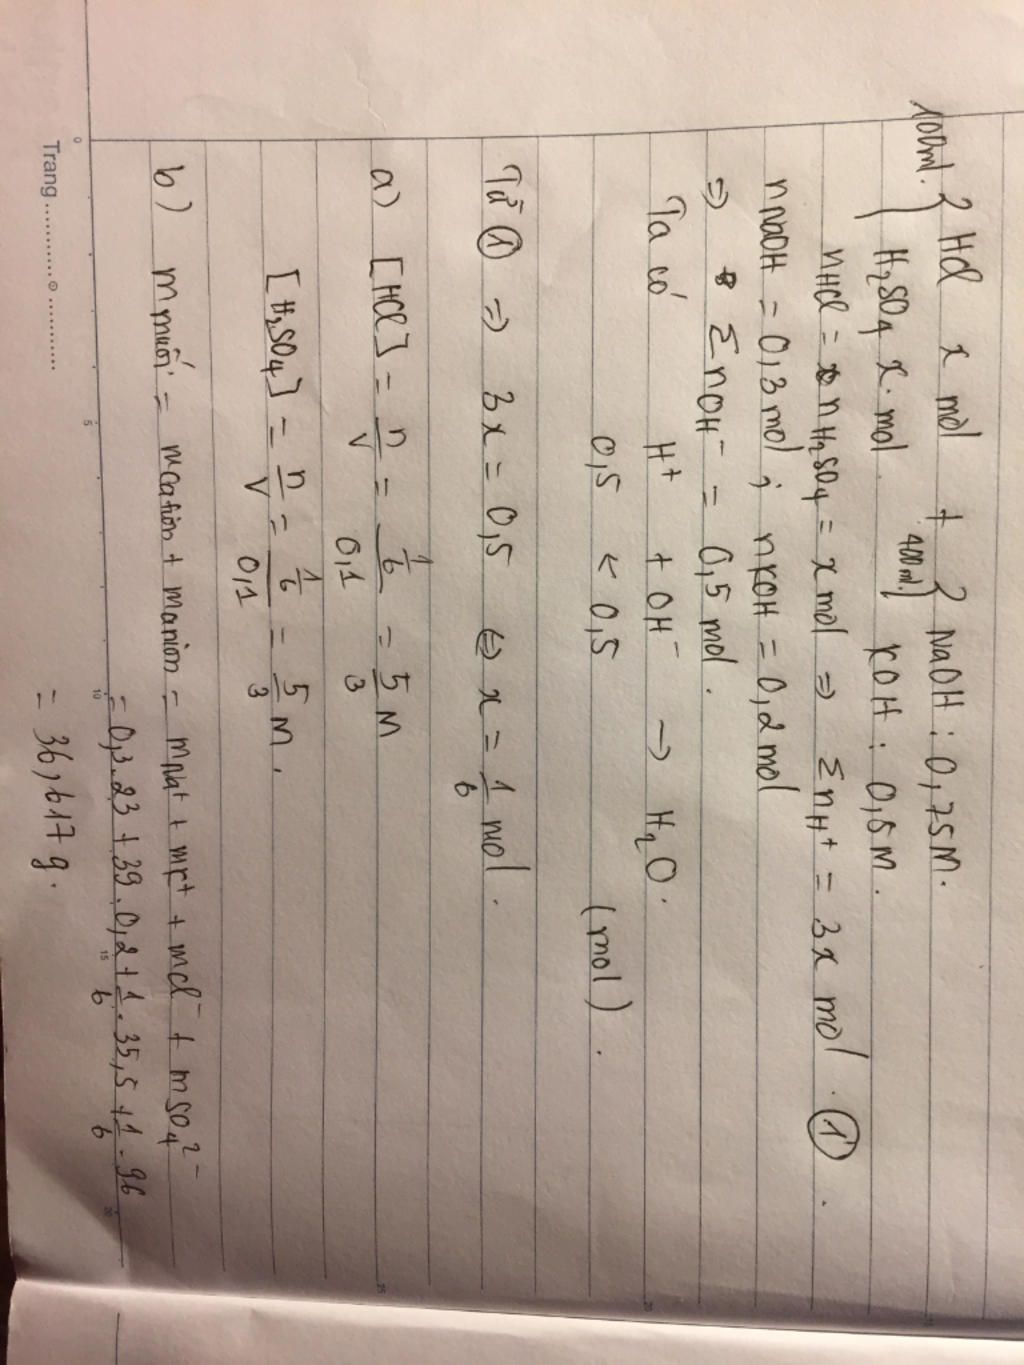 100ml. { HCl x mol + { NaOH : 0,75M.
H₂SO₄ x mol 400ml. } KOH : 0,5M.
nHCl = nH₂SO₄ = x mol => ΣnH⁺ = 3x mol. ①.
nNaOH = 0,3 mol ; nKOH = 0,2 mol
=> ΣnOH⁻ = 0,5 mol.
Ta có H⁺ + OH⁻ → H₂O.
0,5 < 0,5 (mol).
Từ ① => 3x = 0,5 <=> x = 1/6 mol.
a) [HCl] = n/V = 1/6 / 0,1 = 5/3 M
[H₂SO₄] = n/V = 1/6 / 0,1 = 5/3 M.
b) m muối = mcation + manion = mNa⁺ + mK⁺ + mCl⁻ + mSO₄²⁻
= 0,3.23 + 39.0,2 + 1/6.35,5 + 1/6.96
= 36,617 g.
Trang
0 5 10 15 20